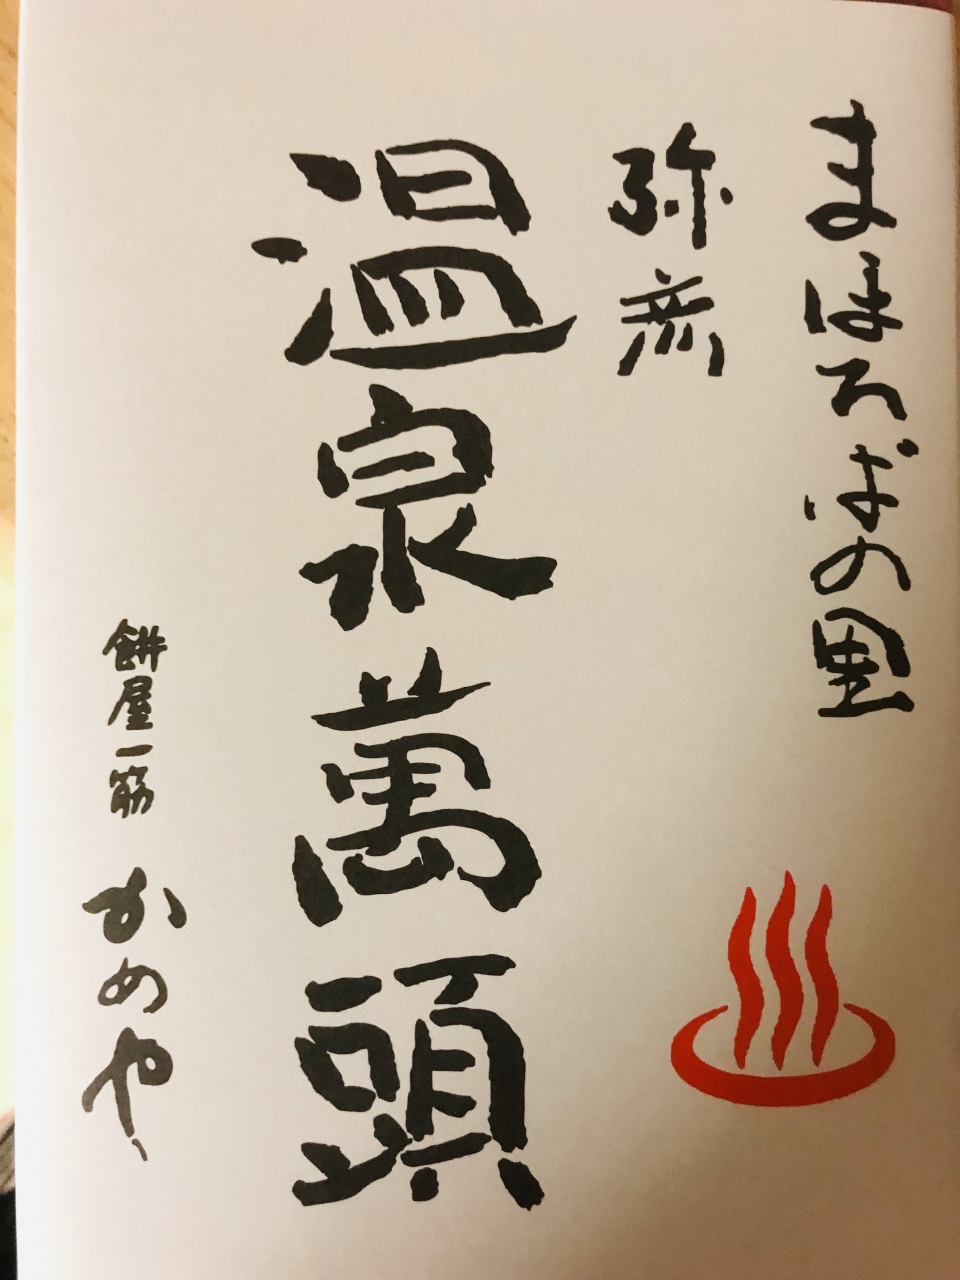 まほろばの里
弥彦
温泉萬頭
餅屋一筋 かめや